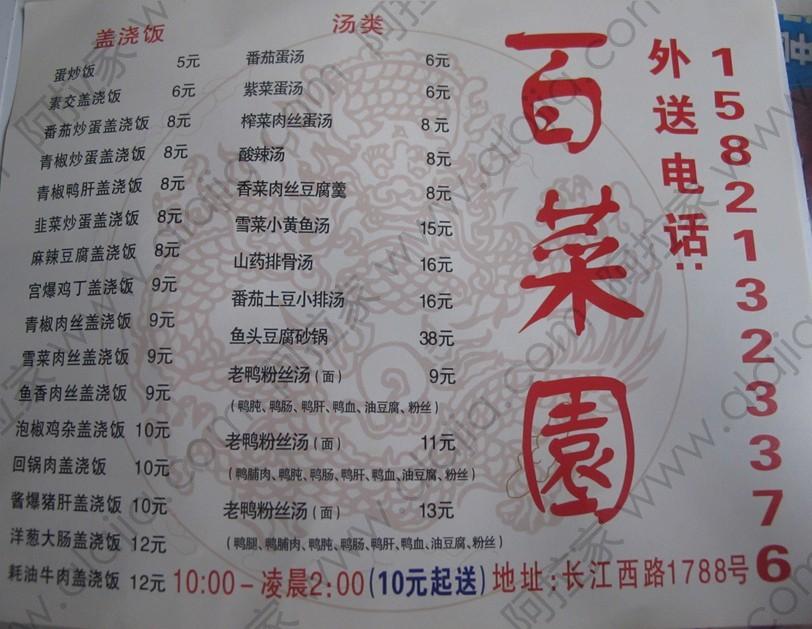 盖浇饭
蛋炒饭 5元
素交盖浇饭 6元
番茄炒蛋盖浇饭 8元
青椒炒蛋盖浇饭 8元
青椒鸭肝盖浇饭 8元
韭菜炒蛋盖浇饭 8元
麻辣豆腐盖浇饭 8元
宫爆鸡丁盖浇饭 9元
青椒肉丝盖浇饭 9元
雪菜肉丝盖浇饭 9元
鱼香肉丝盖浇饭 9元
泡椒鸡杂盖浇饭 10元
回锅肉盖浇饭 10元
酱爆猪肝盖浇饭 10元
洋葱大肠盖浇饭 12元
耗油牛肉盖浇饭 12元
汤类
番茄蛋汤 6元
紫菜蛋汤 6元
榨菜肉丝蛋汤 8元
酸辣汤 8元
香菜肉丝豆腐羹 8元
雪菜小黄鱼汤 15元
山药排骨汤 16元
番茄土豆小排汤 16元
鱼头豆腐砂锅 38元
老鸭粉丝汤(面) 9元
(鸭肫、鸭肠、鸭肝、鸭血、油豆腐、粉丝)
老鸭粉丝汤(面) 11元
(鸭脯肉、鸭肫、鸭肠、鸭肝、鸭血、油豆腐、粉丝)
老鸭粉丝汤(面) 13元
(鸭腿、鸭脯肉、鸭肫、鸭肠、鸭肝、鸭血、油豆腐、粉丝)
百菜園
外送电话:
15821323376
10:00-凌晨2:00(10元起送)地址:长江西路1788号
阿拉家 www.alajia.com